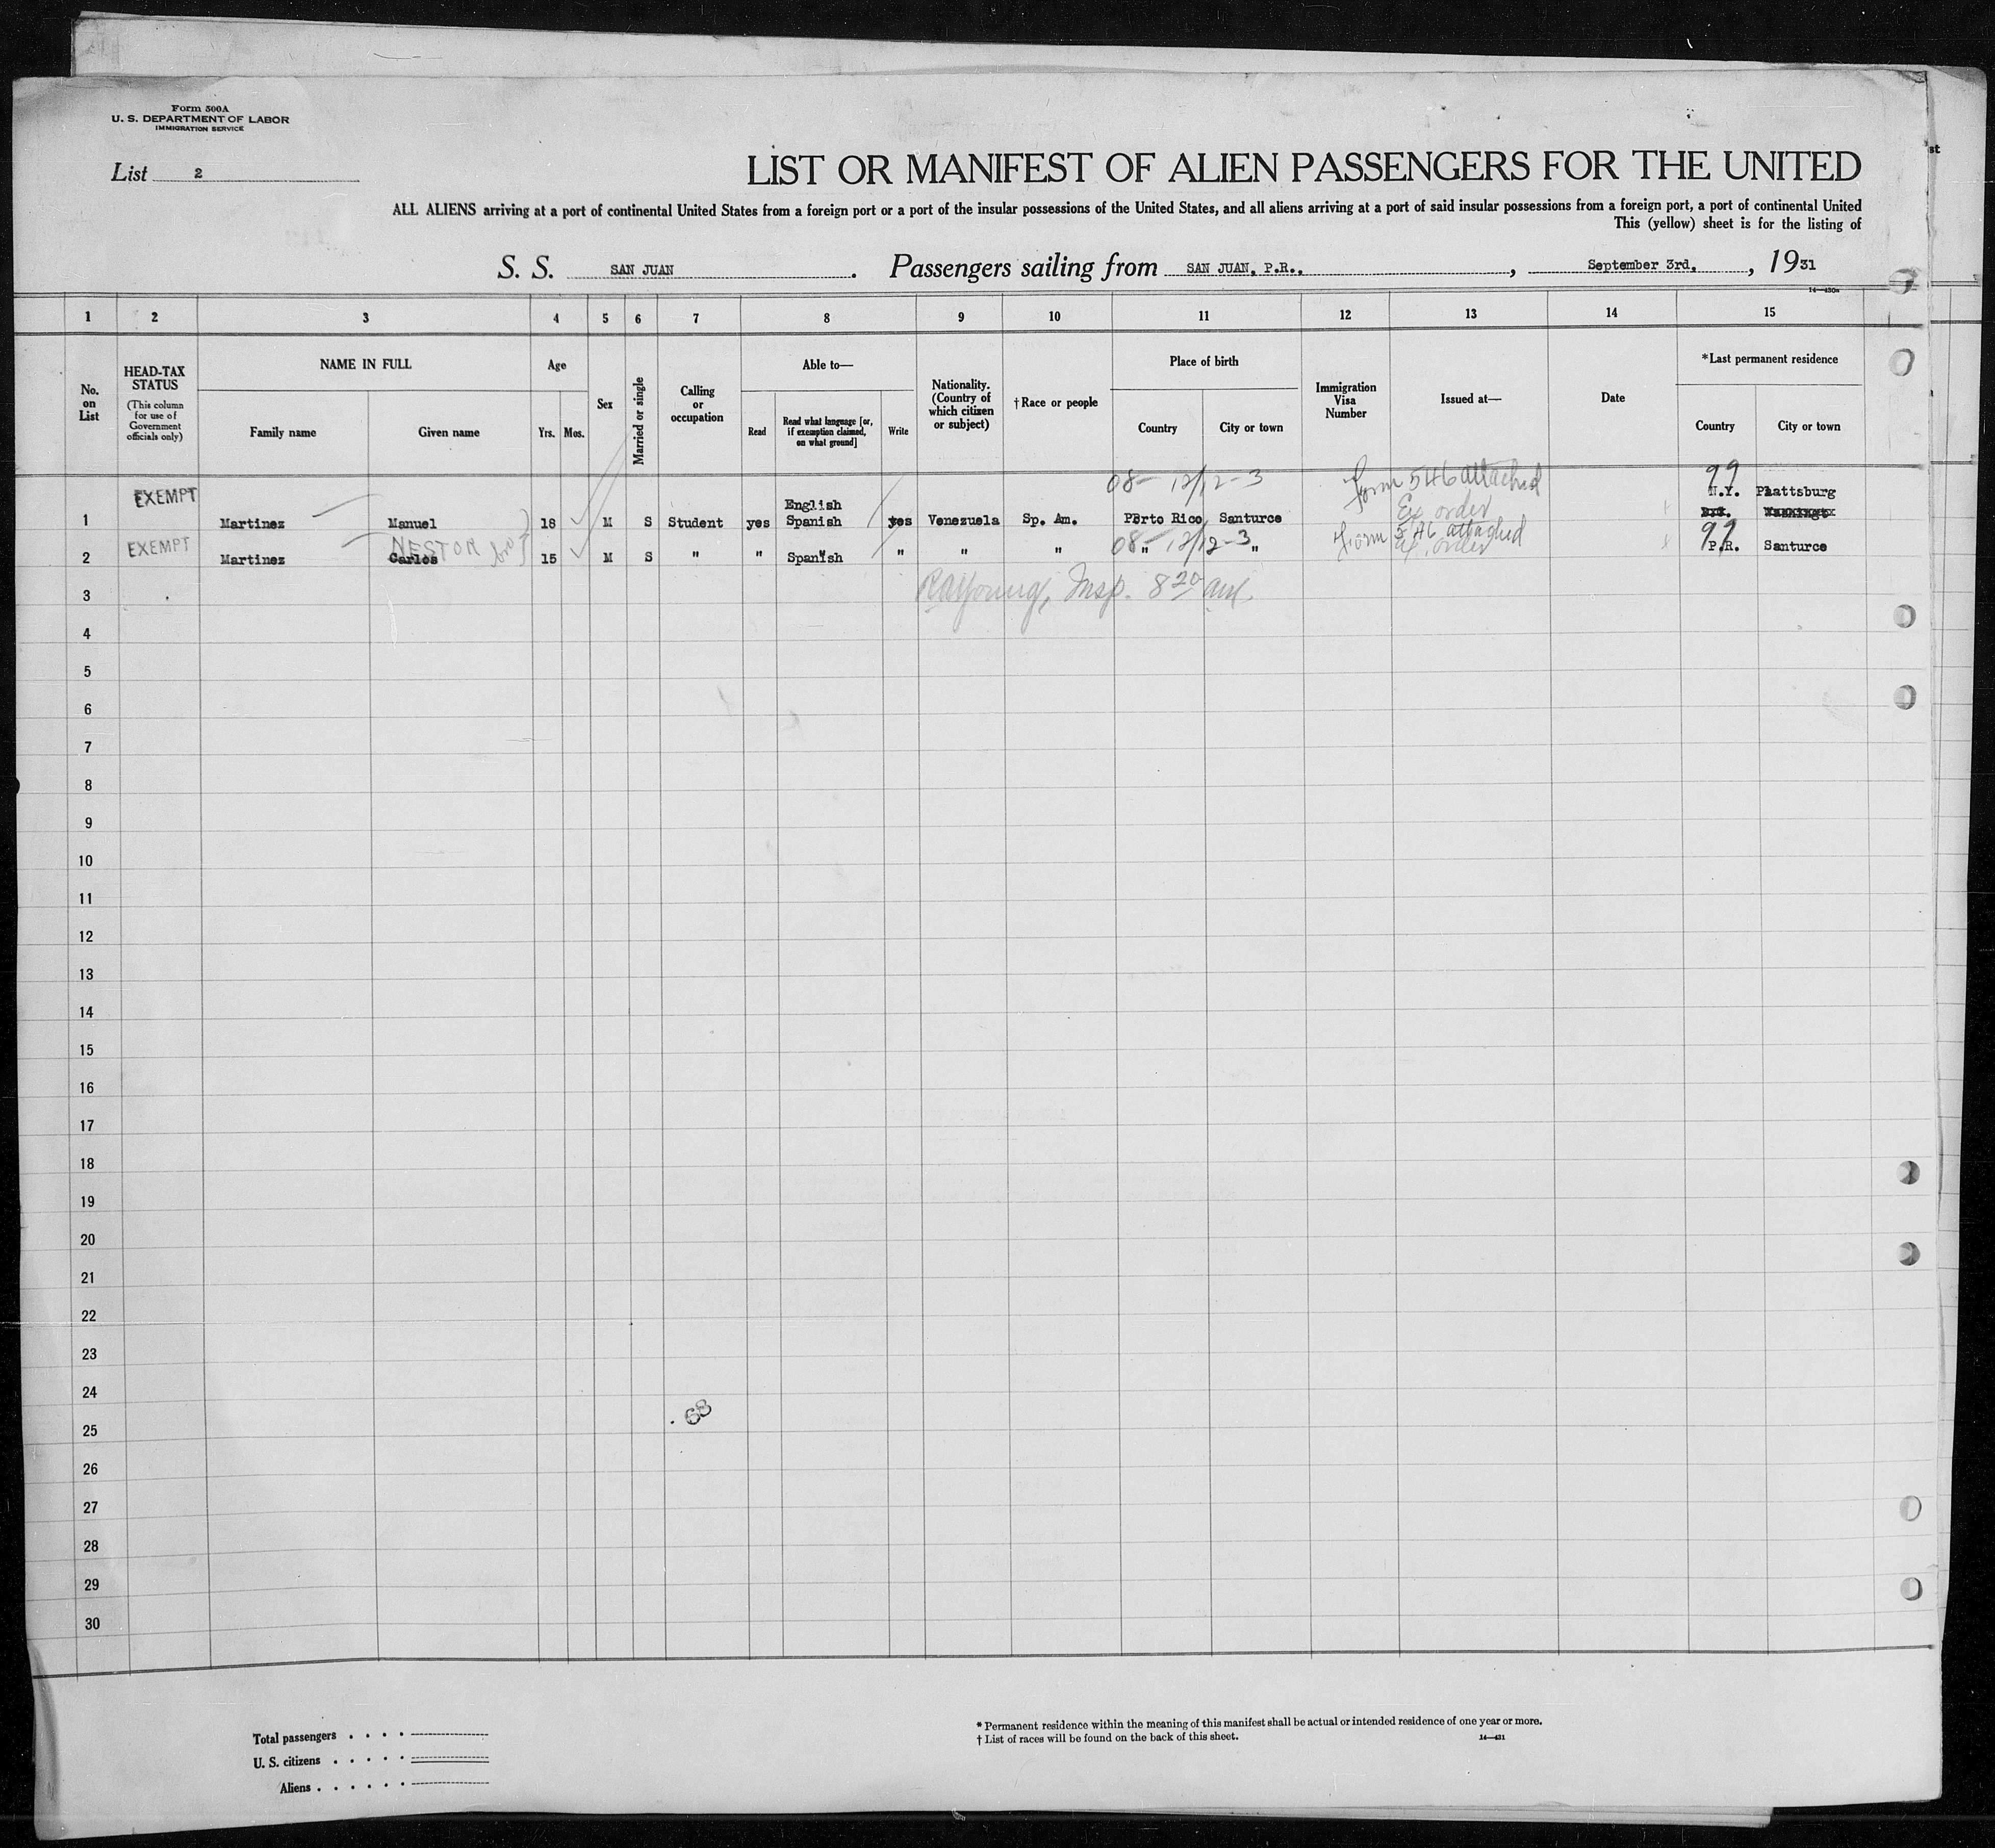 Form 500A
U. S. DEPARTMENT OF LABOR
IMMIGRATION SERVICE
List 2
LIST OR MANIFEST OF ALIEN PASSENGERS FOR THE UNITED
ALL ALIENS arriving at a port of continental United States from a foreign port or a port of the insular possessions of the United States, and all aliens arriving at a port of said insular possessions from a foreign port, a port of continental United
This (yellow) sheet is for the listing of
S. S. SAN JUAN. Passengers sailing from SAN JUAN, P.R., , September 3rd. , 1931
14—430a
1 2 3 4 5 6 7 8 9 10 11 12 13 14 15
No. on List
HEAD-TAX STATUS (This column for use of Government officials only)
NAME IN FULL
Family name Given name
Age
Yrs. Mos.
Sex
Married or single
Calling or occupation
Able to—
Read Read what language [or, if exemption claimed, on what ground] Write
Nationality. (Country of which citizen or subject)
†Race or people
Place of birth
Country City or town
Immigration Visa Number
Issued at—
Date
*Last permanent residence
Country City or town
EXEMPT English 08— 12/12—3 Form 546 attached 99 N.Y. Plattsburg
1 Martinez Manuel 18 M S Student yes Spanish yes Venezuela Sp. Am. Porto Rico Santurce Ex order
2 EXEMPT Martinez Carlos NESTOR bro 15 M S " " Spanish " " " 08— " 12/12—3 " Form 546 attached Ex. order 99 P.R. Santurce
3 Insp. 8 20 am
4
5
6
7
8
9
10
11
12
13
14
15
16
17
18
19
20
21
22
23
24
68
25
26
27
28
29
30
Total passengers . . . .
U. S. citizens . . . . .
Aliens . . . . . .
* Permanent residence within the meaning of this manifest shall be actual or intended residence of one year or more.
† List of races will be found on the back of this sheet. 14—431